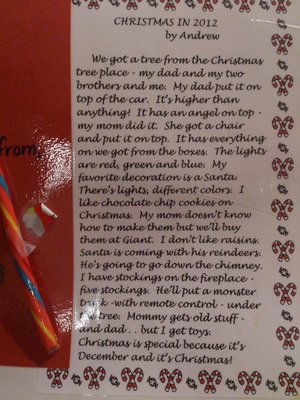 CHRISTMAS IN 2012
by Andrew
We got a tree from the Christmas
tree place - my dad and my two
brothers and me. My dad put it on
top of the car. It's higher than
anything! It has an angel on top -
my mom did it. She got a chair
and put it on top. It has everything
on we got from the boxes. The lights
are red, green and blue. My
favorite decoration is a Santa.
There's lights, different colors. I
like chocolate chip cookies on
Christmas. My mom doesn't know
how to make them but we'll buy
them at Giant. I don't like raisins.
Santa is coming with his reindeers.
He's going to go down the chimney.
I have stockings on the fireplace -
five stockings. He'll put a monster
truck - with remote control - under
the tree. Mommy gets old stuff -
and dad . . but I get toys.
Christmas is special because it's
December and it's Christmas!
from,